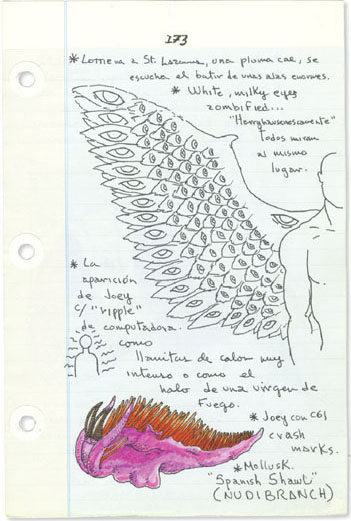 173
* Lorrena a St. Lazarus, una pluma cae, se
escucha el batir de unas alas enormes.
* White, milky eyes
zombified...
"Harryhausenescamente"
todos miran
al mismo
lugar.
* La
aparición
de Joey
c/ "ripple"
de computadora.
como
llamitas de calor muy
intenso o como el
halo de una virgen de
Fuego.
* Joey con CGI
crash
marks.
* Mollusk.
"Spanish Shawl"
(NUDIBRANCH)